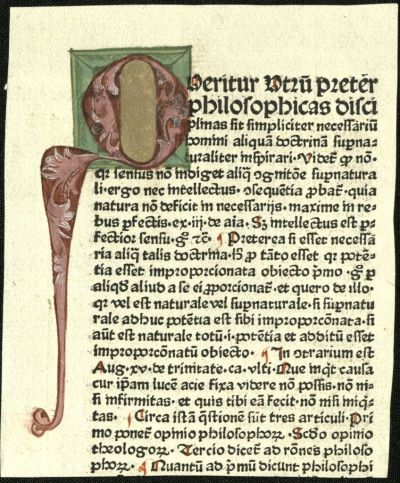 Queritur Vtrū preter
philosophicas disci
plinas sit simpliciter necessariū
homini aliquā doctrinā supna-
turaliter inspirari · Videt̄ ꝙ nō·
qr sensus nō indiget aliq̄ ognitōe supnatura
li·ergo nec intellectus ·ꝯsequētia ꝓbat̄· quia
natura nō deficit in necessarijs · maxime in re
bus ꝑfectis·ex·iij·de aīa· Sꝫ intellectus est ꝑ-
fectior sensu·gͦ ⁊c̄· ¶ Preterea si esset necessa
ria aliq̄ talis doctrīa·hͦ ꝓ tāto esset qr potē-
tia esset improporcionata obiecto pͥmo ·gͦ ꝑ
aliqd̄ aliud a se ei ꝓporcionat̄· et quero de illo·
qr vel est naturale vel supnaturale·si supnatu
rale adhuc potētia est sibi improporcōnata·si
aūt est naturale totū·i·potētia et additū esset
improporcōnatū obiecto · ¶ In ꝯtrarium est
Aug·xv·de trinitate·ca·vlti· Que inqͥt causa
cur ipām lucē acie fixa videre nō possis·nō ni-
si infirmitas· et quis tibi eā fecit· nō nisi iniq-
tas· ¶ Circa istā q̄stionē sūt tres articuli·Pri
mo ponet̄ opinio philosophoꝝ ·Scd̄o opinio
theologoꝝ· Tercio dicet̄ ad rōnes philoso
phoꝝ· ¶ Quantū ad pͥmū dicunt philosophi